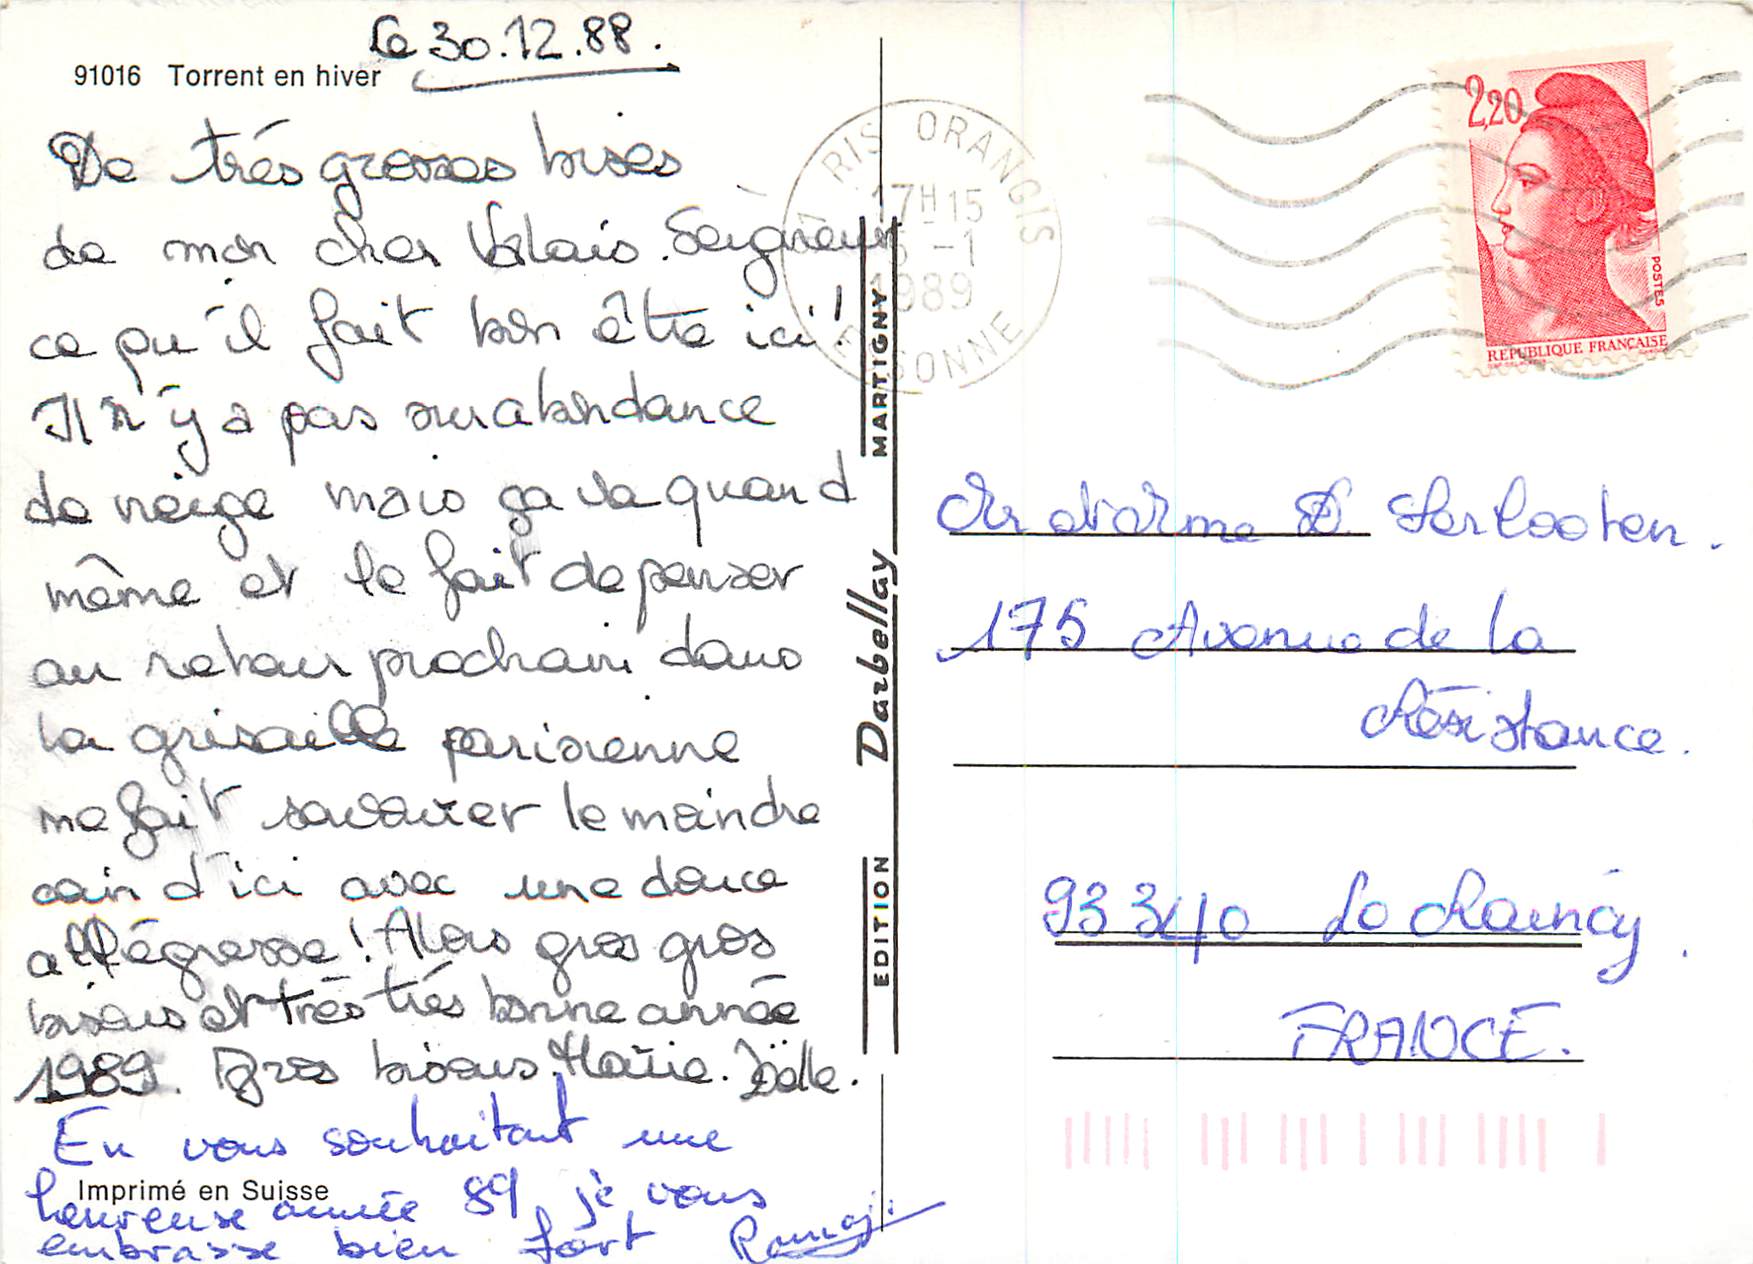 Le 30.12.88.
91016 Torrent en hiver
De très grosses bises
de mon cher Valais. Seigneur
ce qu'il fait bon être ici!
Il n'y a pas surabondance
de neige mais ça va quand
même et le fait de penser
au retour prochain dans
la grisaille parisienne
me fait savourer le moindre
coin d'ici avec une douce
allégresse! Alors gros gros
bisous et très très bonne année
1989. Gros bisous. Marie. Joëlle.
En vous souhaitant une
heureuse année 89 je vous
embrasse bien fort
Imprimé en Suisse
EDITION Darbellay MARTIGNY
RIS ORANGIS
17H15
5 -1
1989
ESSONNE
2,20
POSTES
REPUBLIQUE FRANÇAISE
Mr et Mme
175 Avenue de la
Résistance.
93340 Le Raincy.
FRANCE.